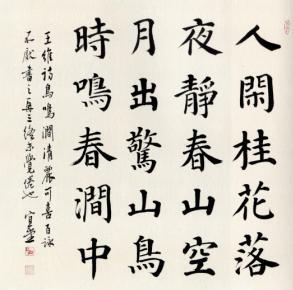 人閑桂花落
夜靜春山空
月出驚山鳥
時鳴春澗中
王維詩鳥鳴澗清麗可喜百詠
不厭書之再三未覺倦也